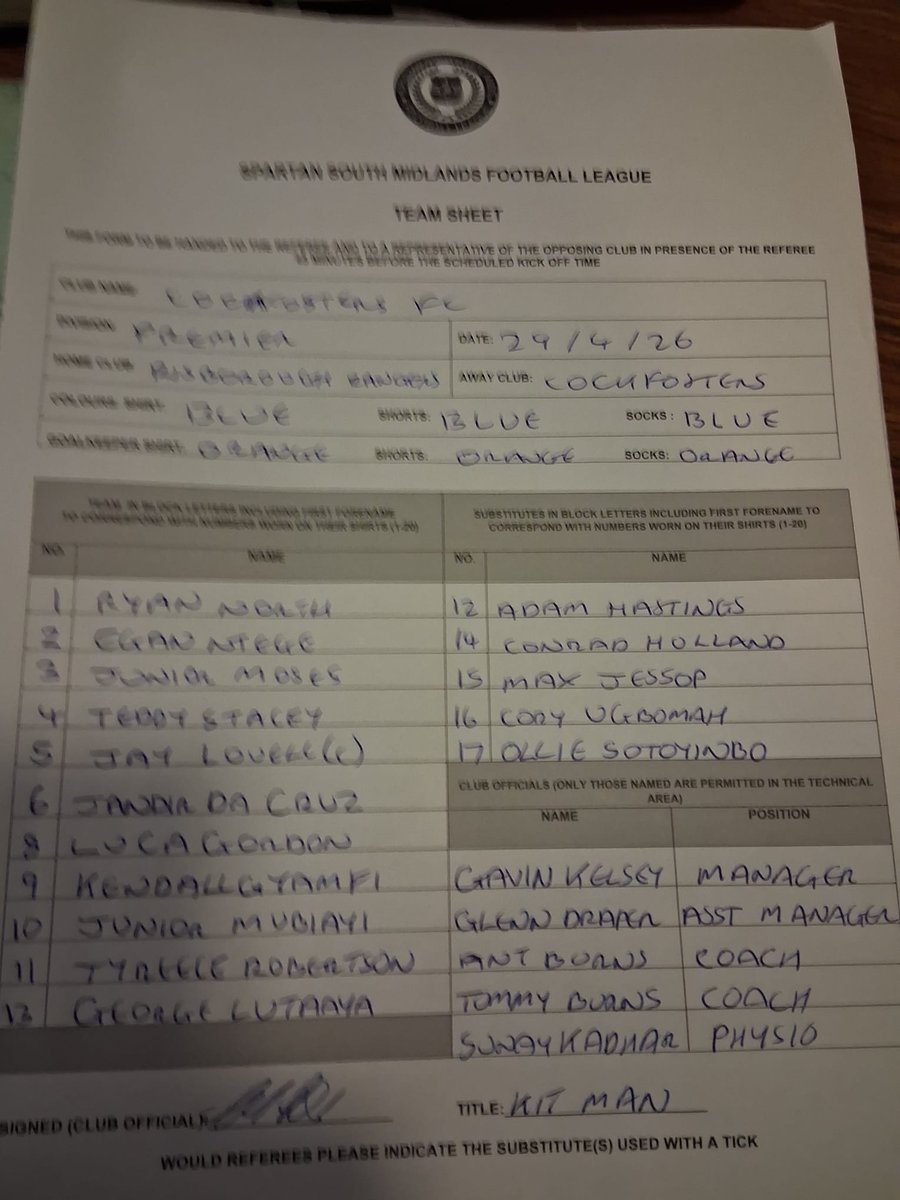 SPARTAN SOUTH MIDLANDS FOOTBALL LEAGUE
TEAM SHEET
THIS FORM TO BE HANDED TO THE REFEREE AND TO A REPRESENTATIVE OF THE OPPOSING CLUB IN PRESENCE OF THE REFEREE
MINUTES BEFORE THE SCHEDULED KICK OFF TIME
CLUB NAME: COCKFOSTERS FC
DIVISION: PREMIER DATE: 29/4/26
HOME CLUB: RISBOROUGH RANGERS AWAY CLUB: COCKFOSTERS
COLOURS: SHIRT: BLUE SHORTS: BLUE SOCKS: BLUE
GOALKEEPER SHIRT: ORANGE SHORTS: ORANGE SOCKS: ORANGE
TEAM IN BLOCK LETTERS INCLUDING FIRST FORENAME
TO CORRESPOND WITH NUMBERS WORN ON THEIR SHIRTS (1-20)
NO. NAME
1 RYAN NORTH
2 EGAN NTEGE
3 JUNIOR MOSES
4 TEDDY STACEY
5 JAY LOVELL (C)
6 JANDIR DA CRUZ
8 LUCA GORDON
9 KENDALL GYAMFI
10 JUNIOR MUBIAYI
11 TYREECE ROBERTSON
13 GEORGE LUTAAYA
SUBSTITUTES IN BLOCK LETTERS INCLUDING FIRST FORENAME TO
CORRESPOND WITH NUMBERS WORN ON THEIR SHIRTS (1-20)
NO. NAME
12 ADAM HASTINGS
14 CONRAD HOLLAND
15 MAX JESSOP
16 CODY UGBOMAH
17 OLLIE SOTOYINBO
CLUB OFFICIALS (ONLY THOSE NAMED ARE PERMITTED IN THE TECHNICAL
AREA)
NAME POSITION
GAVIN KELSEY MANAGER
GLENN DRAPER ASST MANAGER
ANT BURNS COACH
TOMMY BURNS COACH
SUNAY KADHAR PHYSIO
SIGNED (CLUB OFFICIAL): TITLE: KIT MAN
WOULD REFEREES PLEASE INDICATE THE SUBSTITUTE(S) USED WITH A TICK